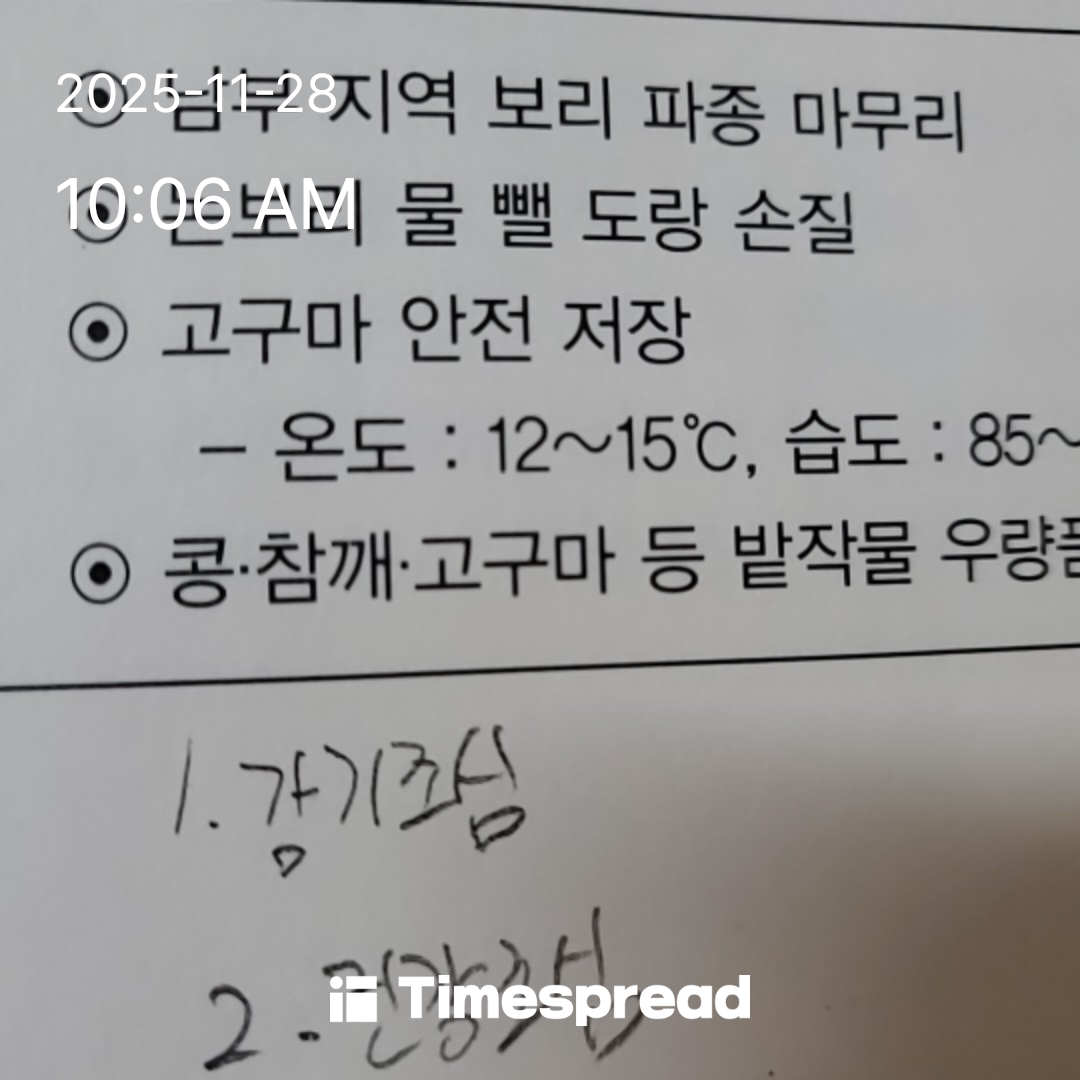 2025-11-28
남부 지역 보리 파종 마무리
10:06 AM
논보리 물 뺄 도랑 손질
고구마 안전 저장
- 온도 : 12~15℃, 습도 : 85~
콩·참깨·고구마 등 밭작물 우량
1. 감기조심
2. 건강조심
Timespread